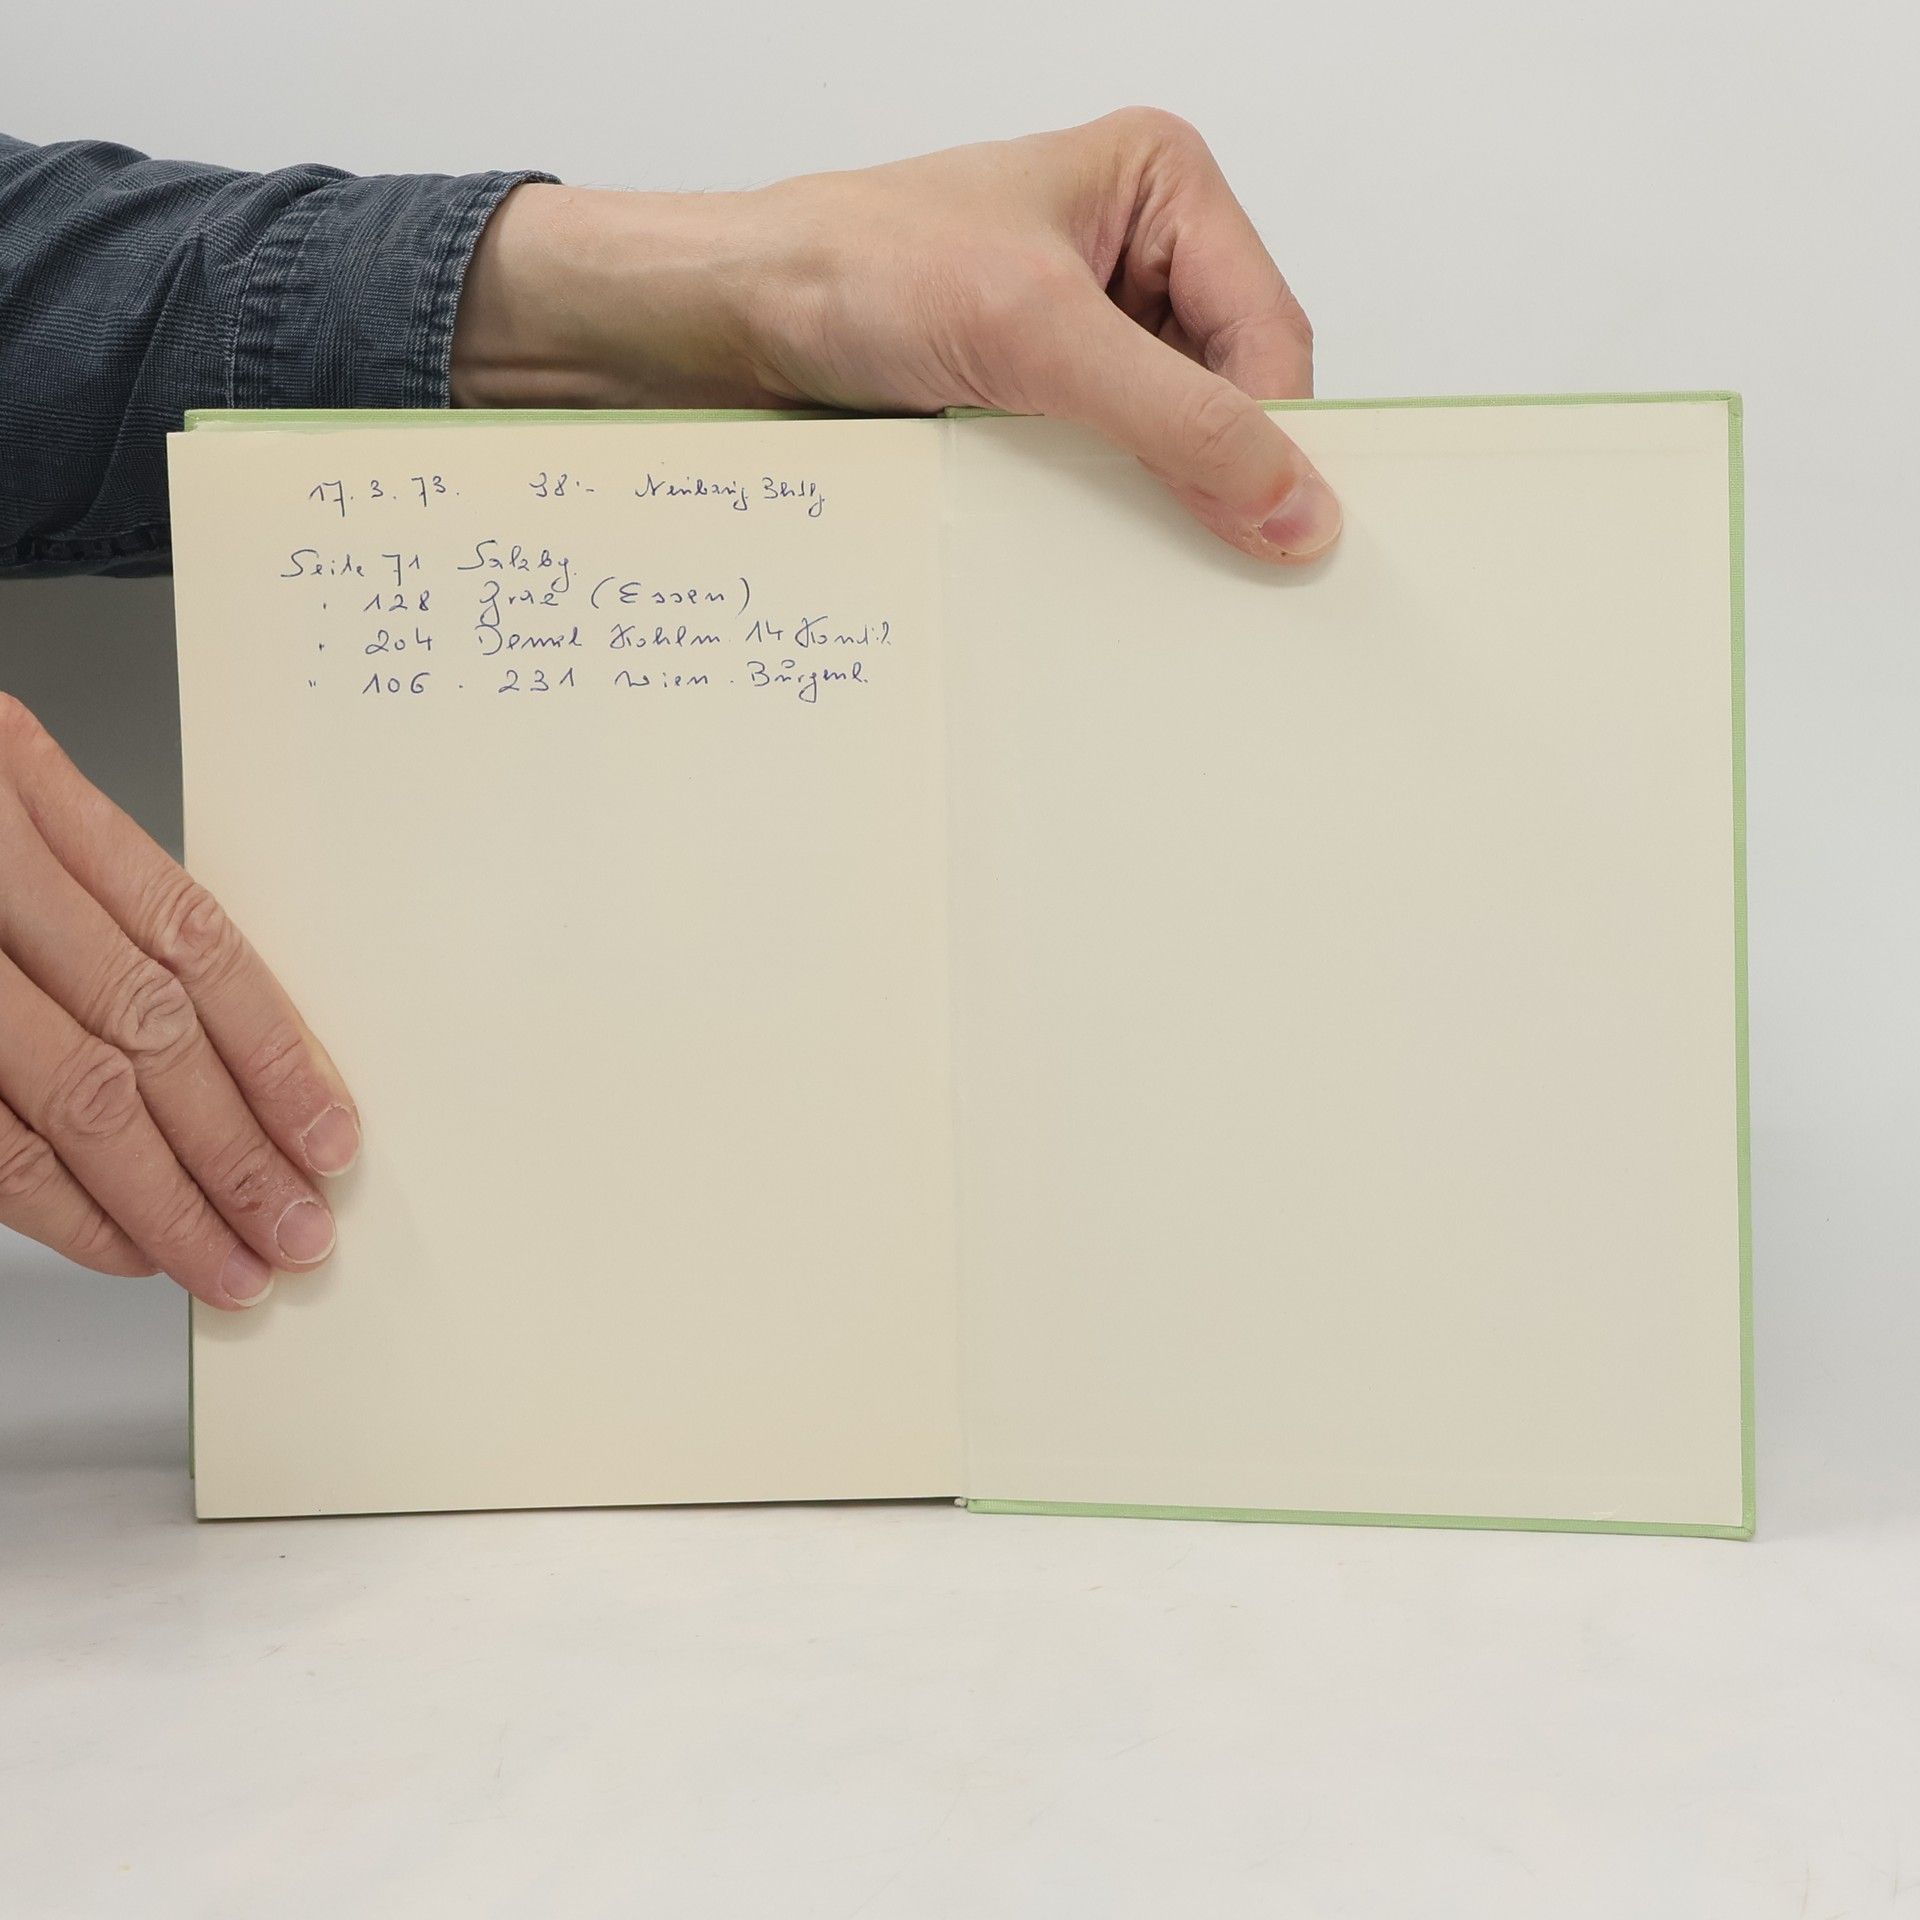 17. 3. 73. 38.-
Seite 71 Salzbg.
" 128 Graz (Essen)
" 204 Demel Kohlm. 14 Kondit.
" 106 . 231 Wien . Bürgenl.